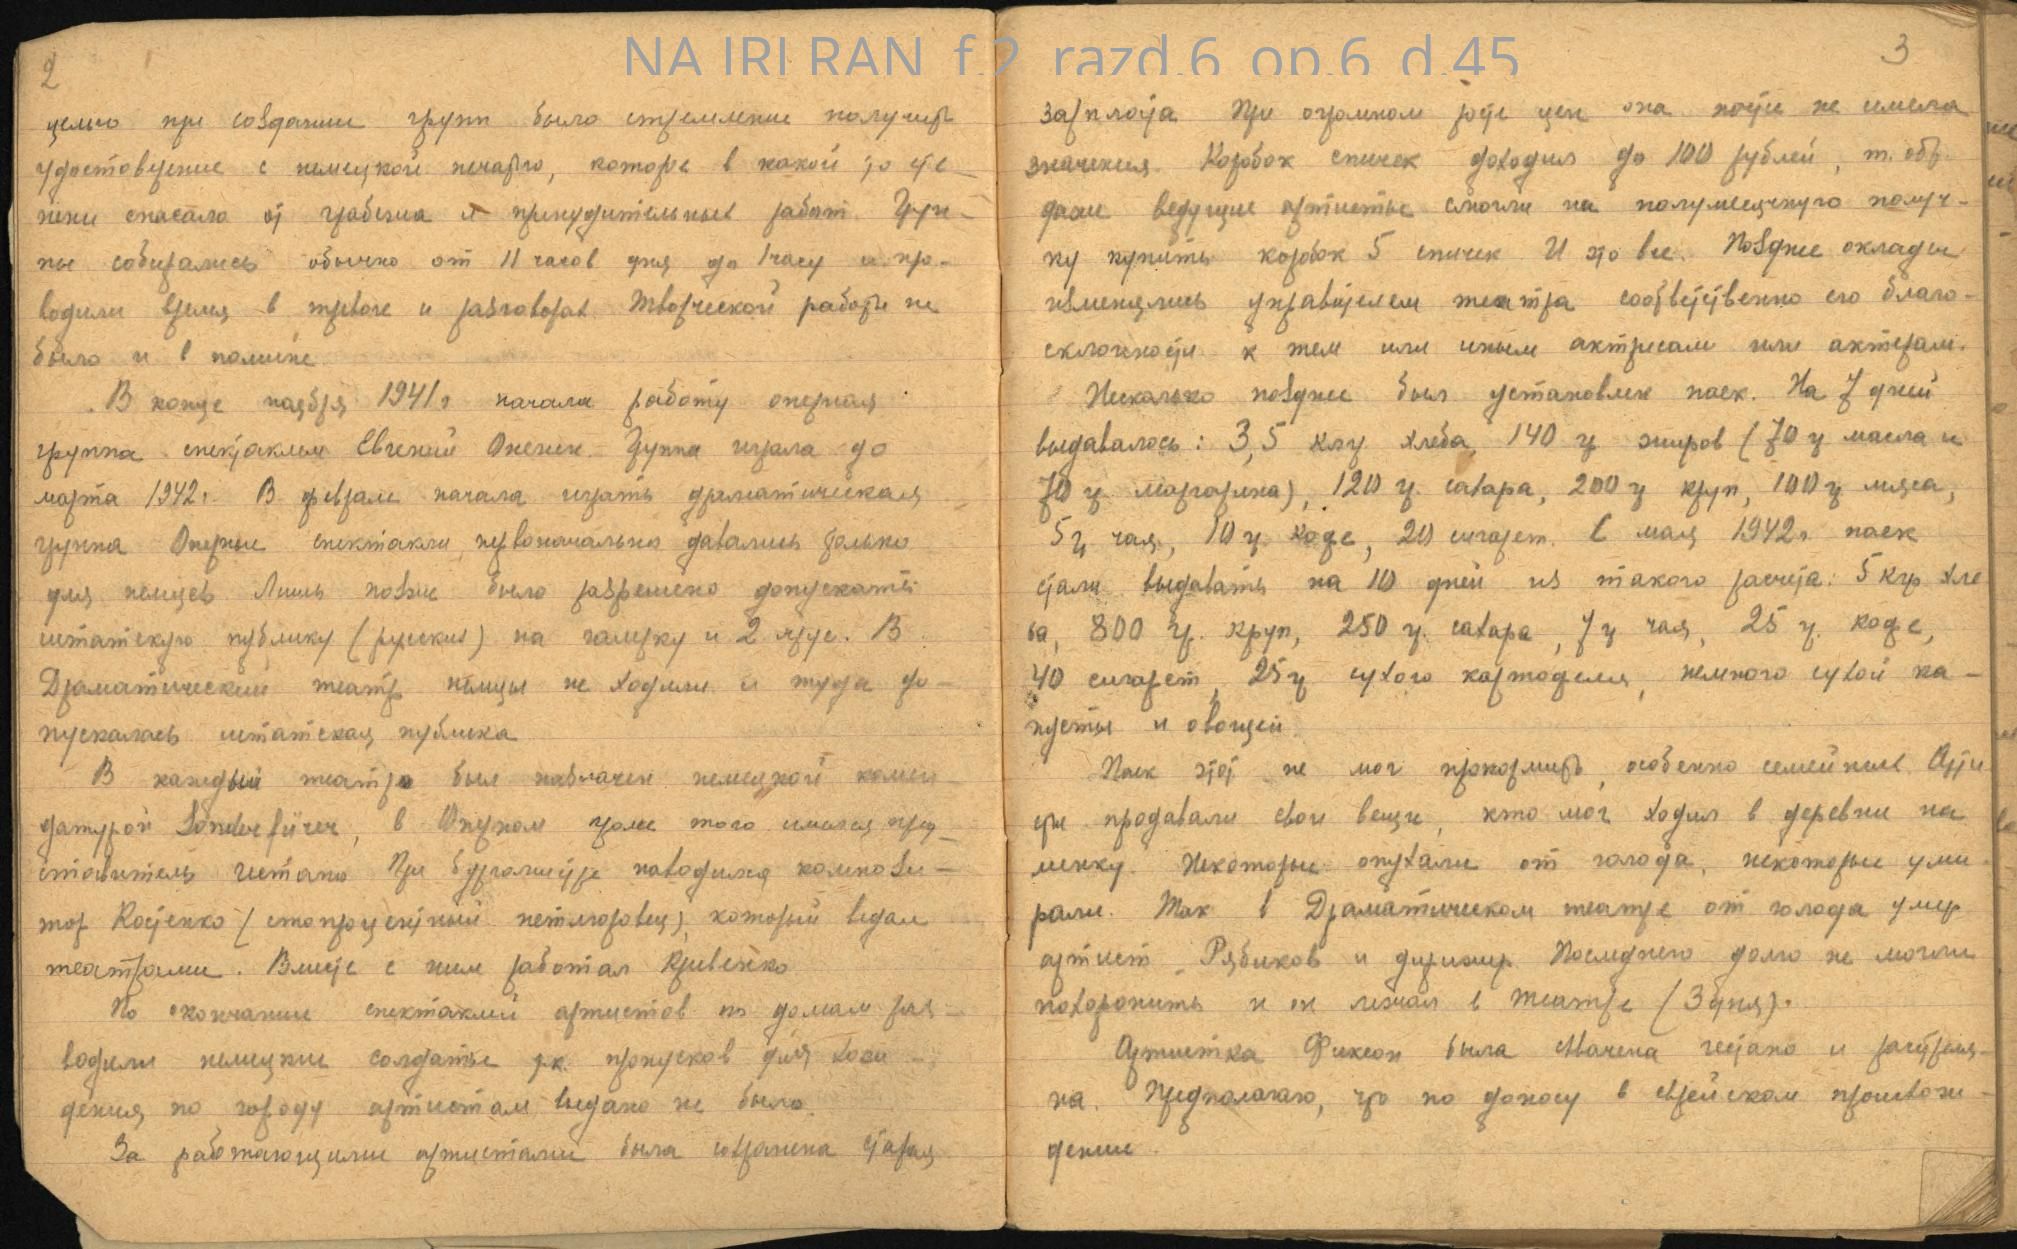 NA IRI RAN f.2 razd.6 op.6 d.45
2
целью при создании групп было стремление получить
удостоверение с немецкой печатью, которое в какой то сте-
пени спасало от грабежа и принудительных работ. Груп-
пы собирались обычно от 11 часов дня до 1 часу и про-
водили время в тревоге и разговорах. Творческой работы не
было и в помине.
В конце ноября 1941 г начала работу оперная
группа спектаклем Евгений Онегин. Группа играла до
марта 1942 г. В феврале начала играть драматическая
группа Оперные спектакли первоначально давались только
для немцев Лишь позже было разрешено допускать
штатскую публику (русских) на галерку и 2 ярус. В
Драматический театр немцы не ходили и туда до-
пускалась штатская публика
В каждый театр был назначен немецкой комен-
датурой Sonderfürer, в Оперном кроме того имелся пред-
ставитель гестапо При бургомистре находился компози-
тор Костенко (стопроцентный петлюровец), который ведал
театрами. Вместе с ним работал Кривенко
По окончании спектаклей артистов по домам раз-
водили немецкие солдаты т.к. пропусков для хож-
дения по городу артистам выдано не было.
За работающими артистами была сохранена старая
3
зарплата При огромном росте цен она почти не имела
значения. Коробок спичек доходил до 100 рублей, т. обр.
даже ведущие артисты смогли на полумесячную получ-
ку купить коробок 5 спичек И это все. Позднее оклады
изменялись управителем театра соответственно его благо-
склонности к тем или иным актрисам или актерам.
Несколько позднее был установлен паек. На 7 дней
выдавалось: 3,5 клг хлеба, 140 гр жиров (70 гр масла и
70 гр. маргарина), 120 гр. сахара, 200 гр круп, 100 гр мяса,
5 гр чая, 10 гр. кофе, 20 сигарет. С мая 1942 г паек
стали выдавать на 10 дней из такого расчета: 5 кгр хле
ба, 800 гр. круп, 250 гр. сахара, 7 гр чая, 25 гр. кофе,
40 сигарет, 25 гр сухого картофеля, немного сухой ка-
пусты и овощей.
Паек этот не мог прокормить, особенно семейных. Арти
сты продавали свои вещи, кто мог ходил в деревни на
менку. Некоторые опухали от голода, некоторые уми
рали. Так в Драматическом театре от голода умер
артист Рябиков и дирижер. Последнего долго не могли
похоронить и он лежал в театре (3 дня).
Артистка Фиксон была схвачена гестапо и расстреля-
на. Предполагаю, что по доносу в еврейском происхож-
дении.